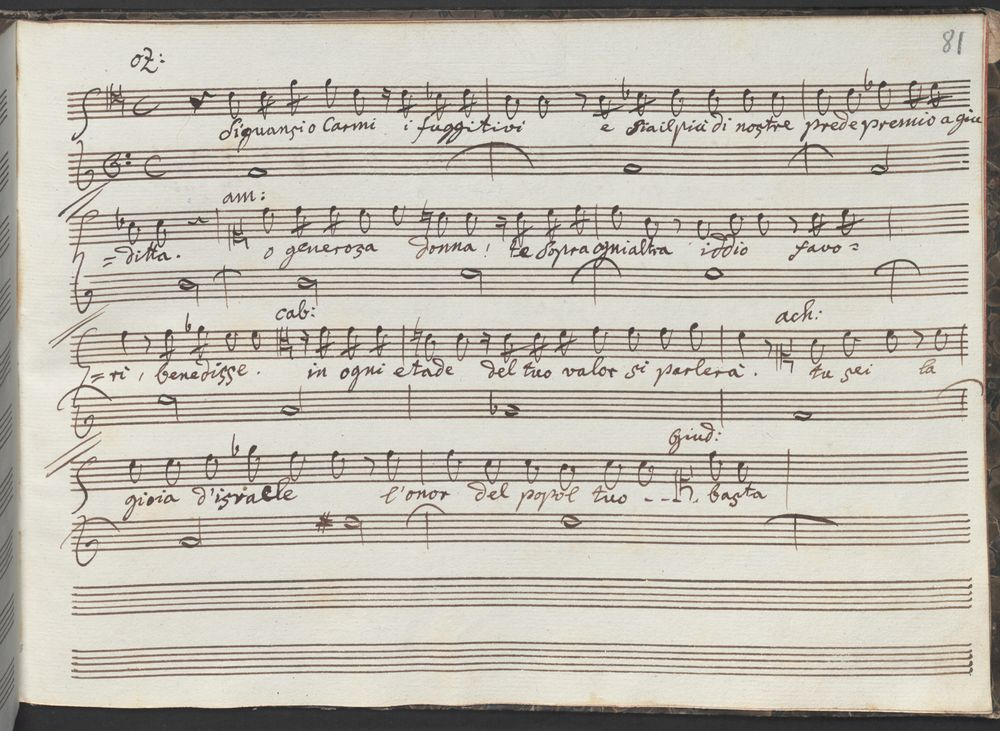 81
oz:
Siquansio Carmi i fuggitivi e sia il più di nostre prede premio a giu
am:
= ditta. o generosa donna! te sopra ognialtra iddio favo =
cab: ach:
= ri, benedisse. in ogni etade del tuo valor si parlerà. tu sei la
giud:
gioia d'israele l'onor del popol tuo -- basta